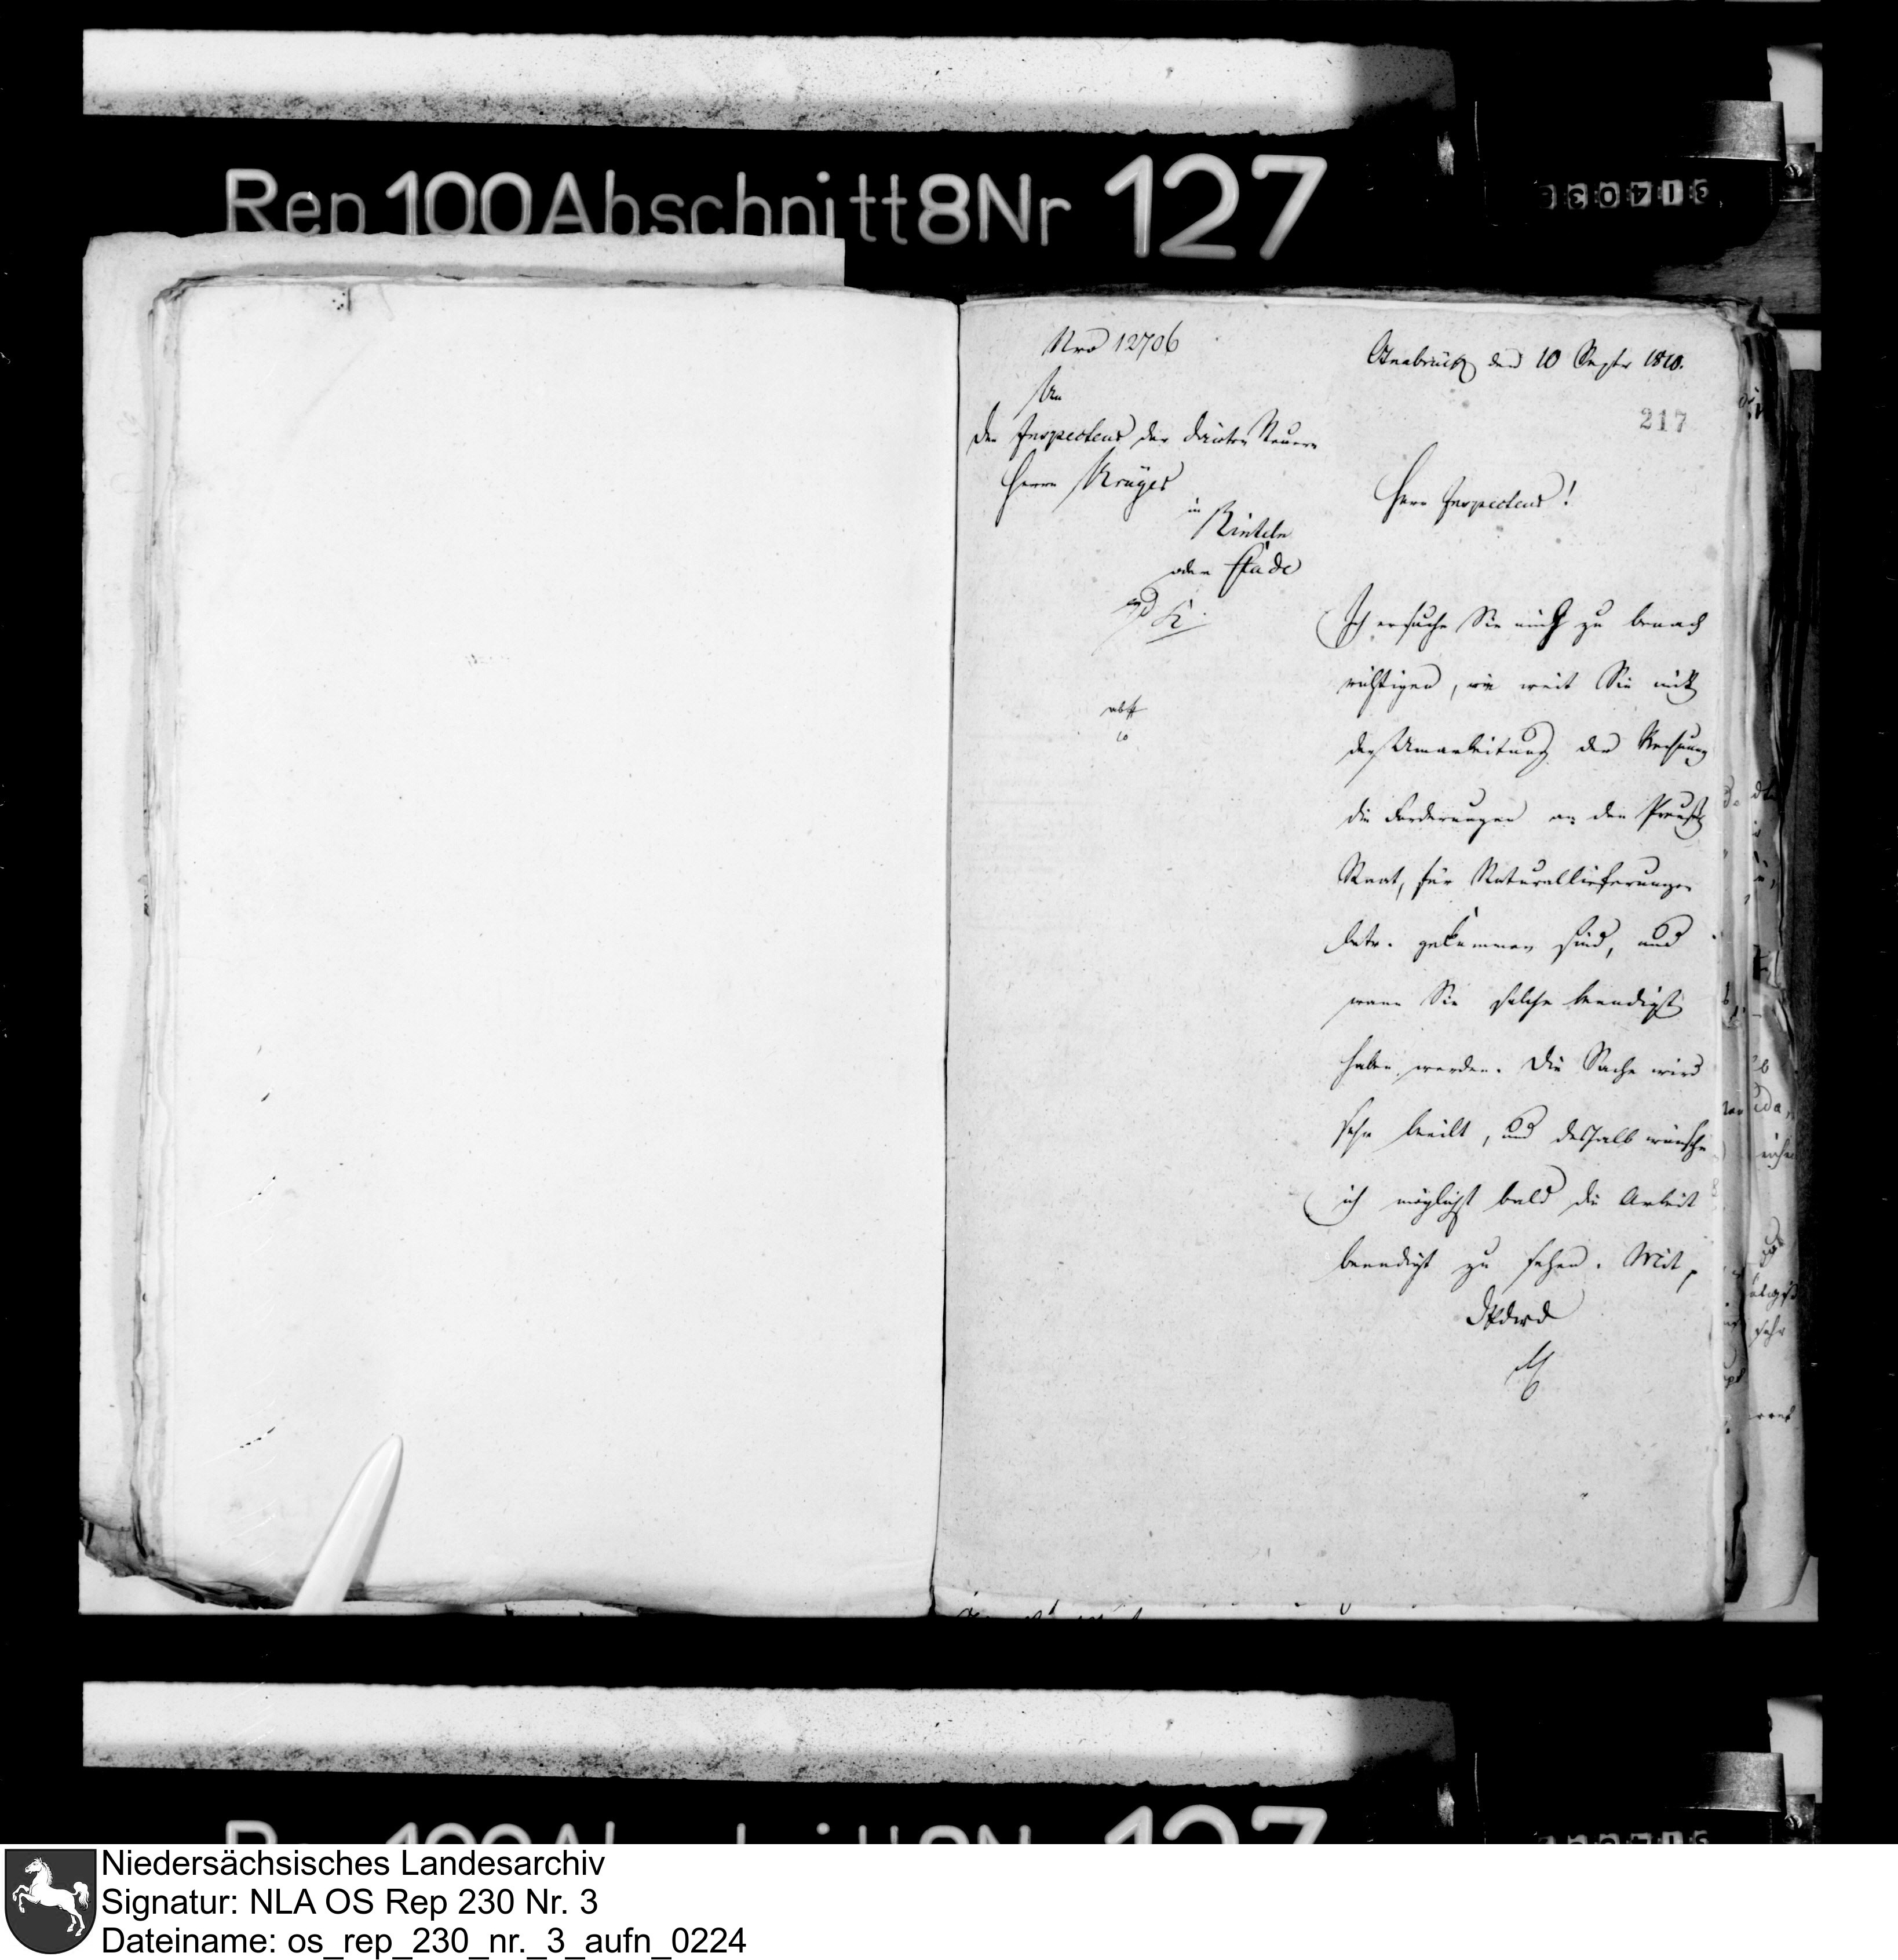 Rep 100 Abschnitt 8 Nr 127
Nro 12706
An
den Inspecteur der directen Steuern
Herrn Krüger
in
Rinteln
oder Stade
abg
Osnabrück den 10 Septbr 1810.
217
Herr Inspecteur!
Ich ersuche Sie mich zu benach
richtigen, wie weit Sie mit
der Umarbeitung der Rechnung
die Forderungen an den Preuß.
Staat, für Naturallieferungen
betr. gekommen sind, und
wann Sie solche beendigt
haben werden. Die Sache wird
sehr beeilt, und deshalb wünsche
ich möglichst bald die Arbeit
beendigt zu sehen. Mit
Niedersächsisches Landesarchiv
Signatur: NLA OS Rep 230 Nr. 3
Dateiname: os_rep_230_nr._3_aufn_0224